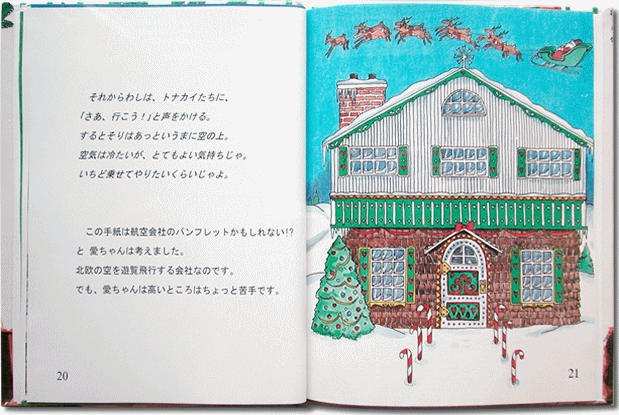 それからわしは、トナカイたちに、
「さあ、行こう！」と声をかける。
するとそりはあっというまに空の上。
空気は冷たいが、とてもよい気持ちじゃ。
いちど乗せてやりたいくらいじゃよ。
この手紙は航空会社のパンフレットかもしれない!?
と 愛ちゃんは考えました。
北欧の空を遊覧飛行する会社なのです。
でも、愛ちゃんは高いところはちょっと苦手です。
20
21